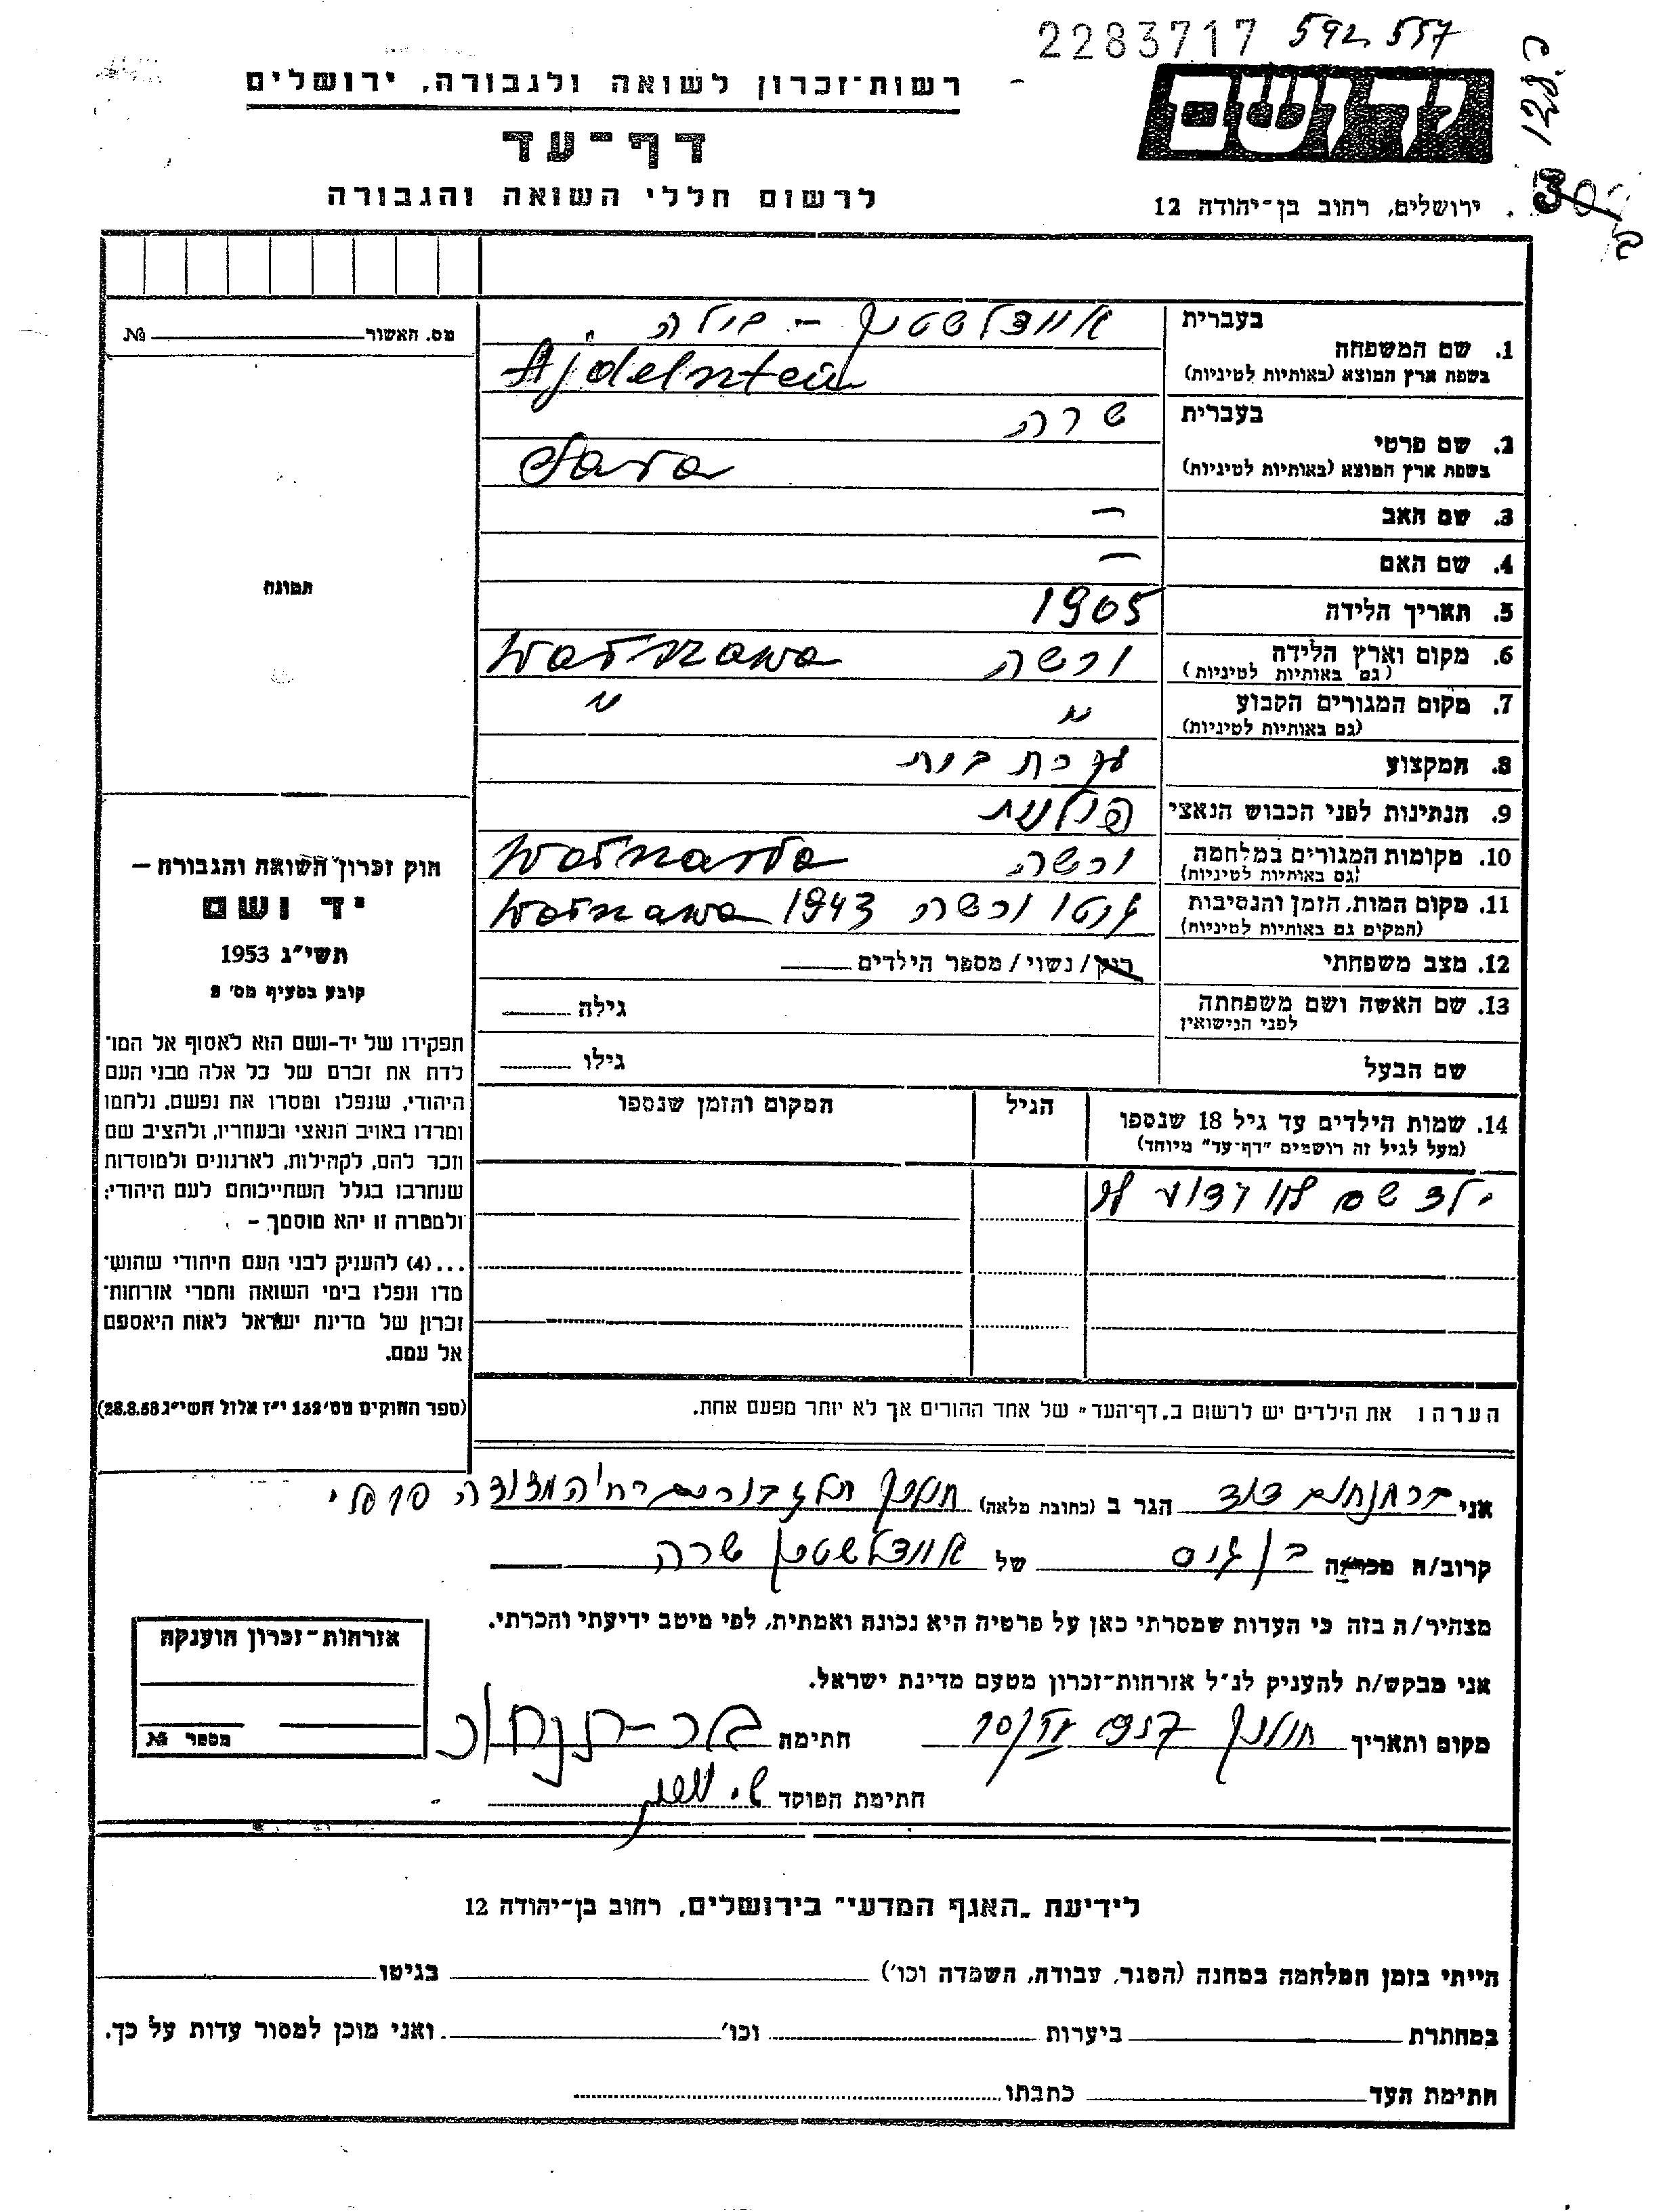 2283717 592 557
רשות-זכרון לשואה ולגבורה, ירושלים
יד ושם
דף-עד
לרשום חללי השואה והגבורה
ירושלים, רחוב בן-יהודה 12
מס. האשור № 
תמונה
1. שם המשפחה
בעברית
בשפת ארץ המוצא (באותיות לטיניות)
Ajdelsztein
2. שם פרטי
בעברית שרה
בשפת ארץ המוצא (באותיות לטיניות) Sara
3. שם האב —
4. שם האם —
5. תאריך הלידה 1905
6. מקום וארץ הלידה ורשה Warszawa
(גם באותיות לטיניות)
7. מקום המגורים הקבוע " "
(גם באותיות לטיניות)
8. המקצוע עקרת בית
9. הנתינות לפני הכבוש הנאצי פולנית
10. מקומות המגורים במלחמה ורשה Warszawa
(גם באותיות לטיניות)
11. מקום המות, הזמן והנסיבות גטו ורשה 1943 Warszawa
(המקום גם באותיות לטיניות)
12. מצב משפחתי רווק/נשוי/מספר הילדים
13. שם האשה ושם משפחתה גילה
לפני הנישואין
שם הבעל גילו
14. שמות הילדים עד גיל 18 שנספו הגיל המקום והזמן שנספו
(מעל לגיל זה רושמים "דף-עד" מיוחד)
ילד שם לא ידוע לי
חוק זכרון השואה והגבורה —
יד ושם
תשי"ג 1953
קובע בסעיף מס' 2
תפקידו של יד-ושם הוא לאסוף אל המו־
לדת את זכרם של כל אלה מבני העם
היהודי, שנפלו ומסרו את נפשם, נלחמו
ומרדו באויב הנאצי ובעוזריו, ולהציב שם
וזכר להם, לקהילות, לארגונים ולמוסדות
שנחרבו בגלל השתייכותם לעם היהודי;
ולמטרה זו יהא מוסמך –
...(4) להעניק לבני העם היהודי שהוש־
מדו ונפלו בימי השואה והמרי אזרחות־
זכרון של מדינת ישראל לאות היאספם
אל עמם.
(ספר החוקים מס' 132 י"ז אלול תשי"ג 28.8.53)
הערה: את הילדים יש לרשום ב"דף-העד" של אחד ההורים אך לא יותר מפעם אחת.
אני דוד הגר ב (כתובת מלאה) חולון
קרוב/ה מכר/ה בן גיס של איידלשטיין שרה
מצהיר/ה בזה כי העדות שמסרתי כאן על פרטיה היא נכונה ואמתית, לפי מיטב ידיעתי והכרתי.
אני מבקש/ת להעניק לנ"ל אזרחות-זכרון מטעם מדינת ישראל.
מקום ותאריך חולון חתימה
חתימת הפוקד
אזרחות-זכרון הוענקה
מספר №
לידיעת "האגף המדעי" בירושלים, רחוב בן-יהודה 12
הייתי בזמן המלחמה במחנה (הסגר, עבודה, השמדה וכו') בגיטו
במחתרת ביערות וכו' ואני מוכן למסור עדות על כך.
חתימת העד כתבתו